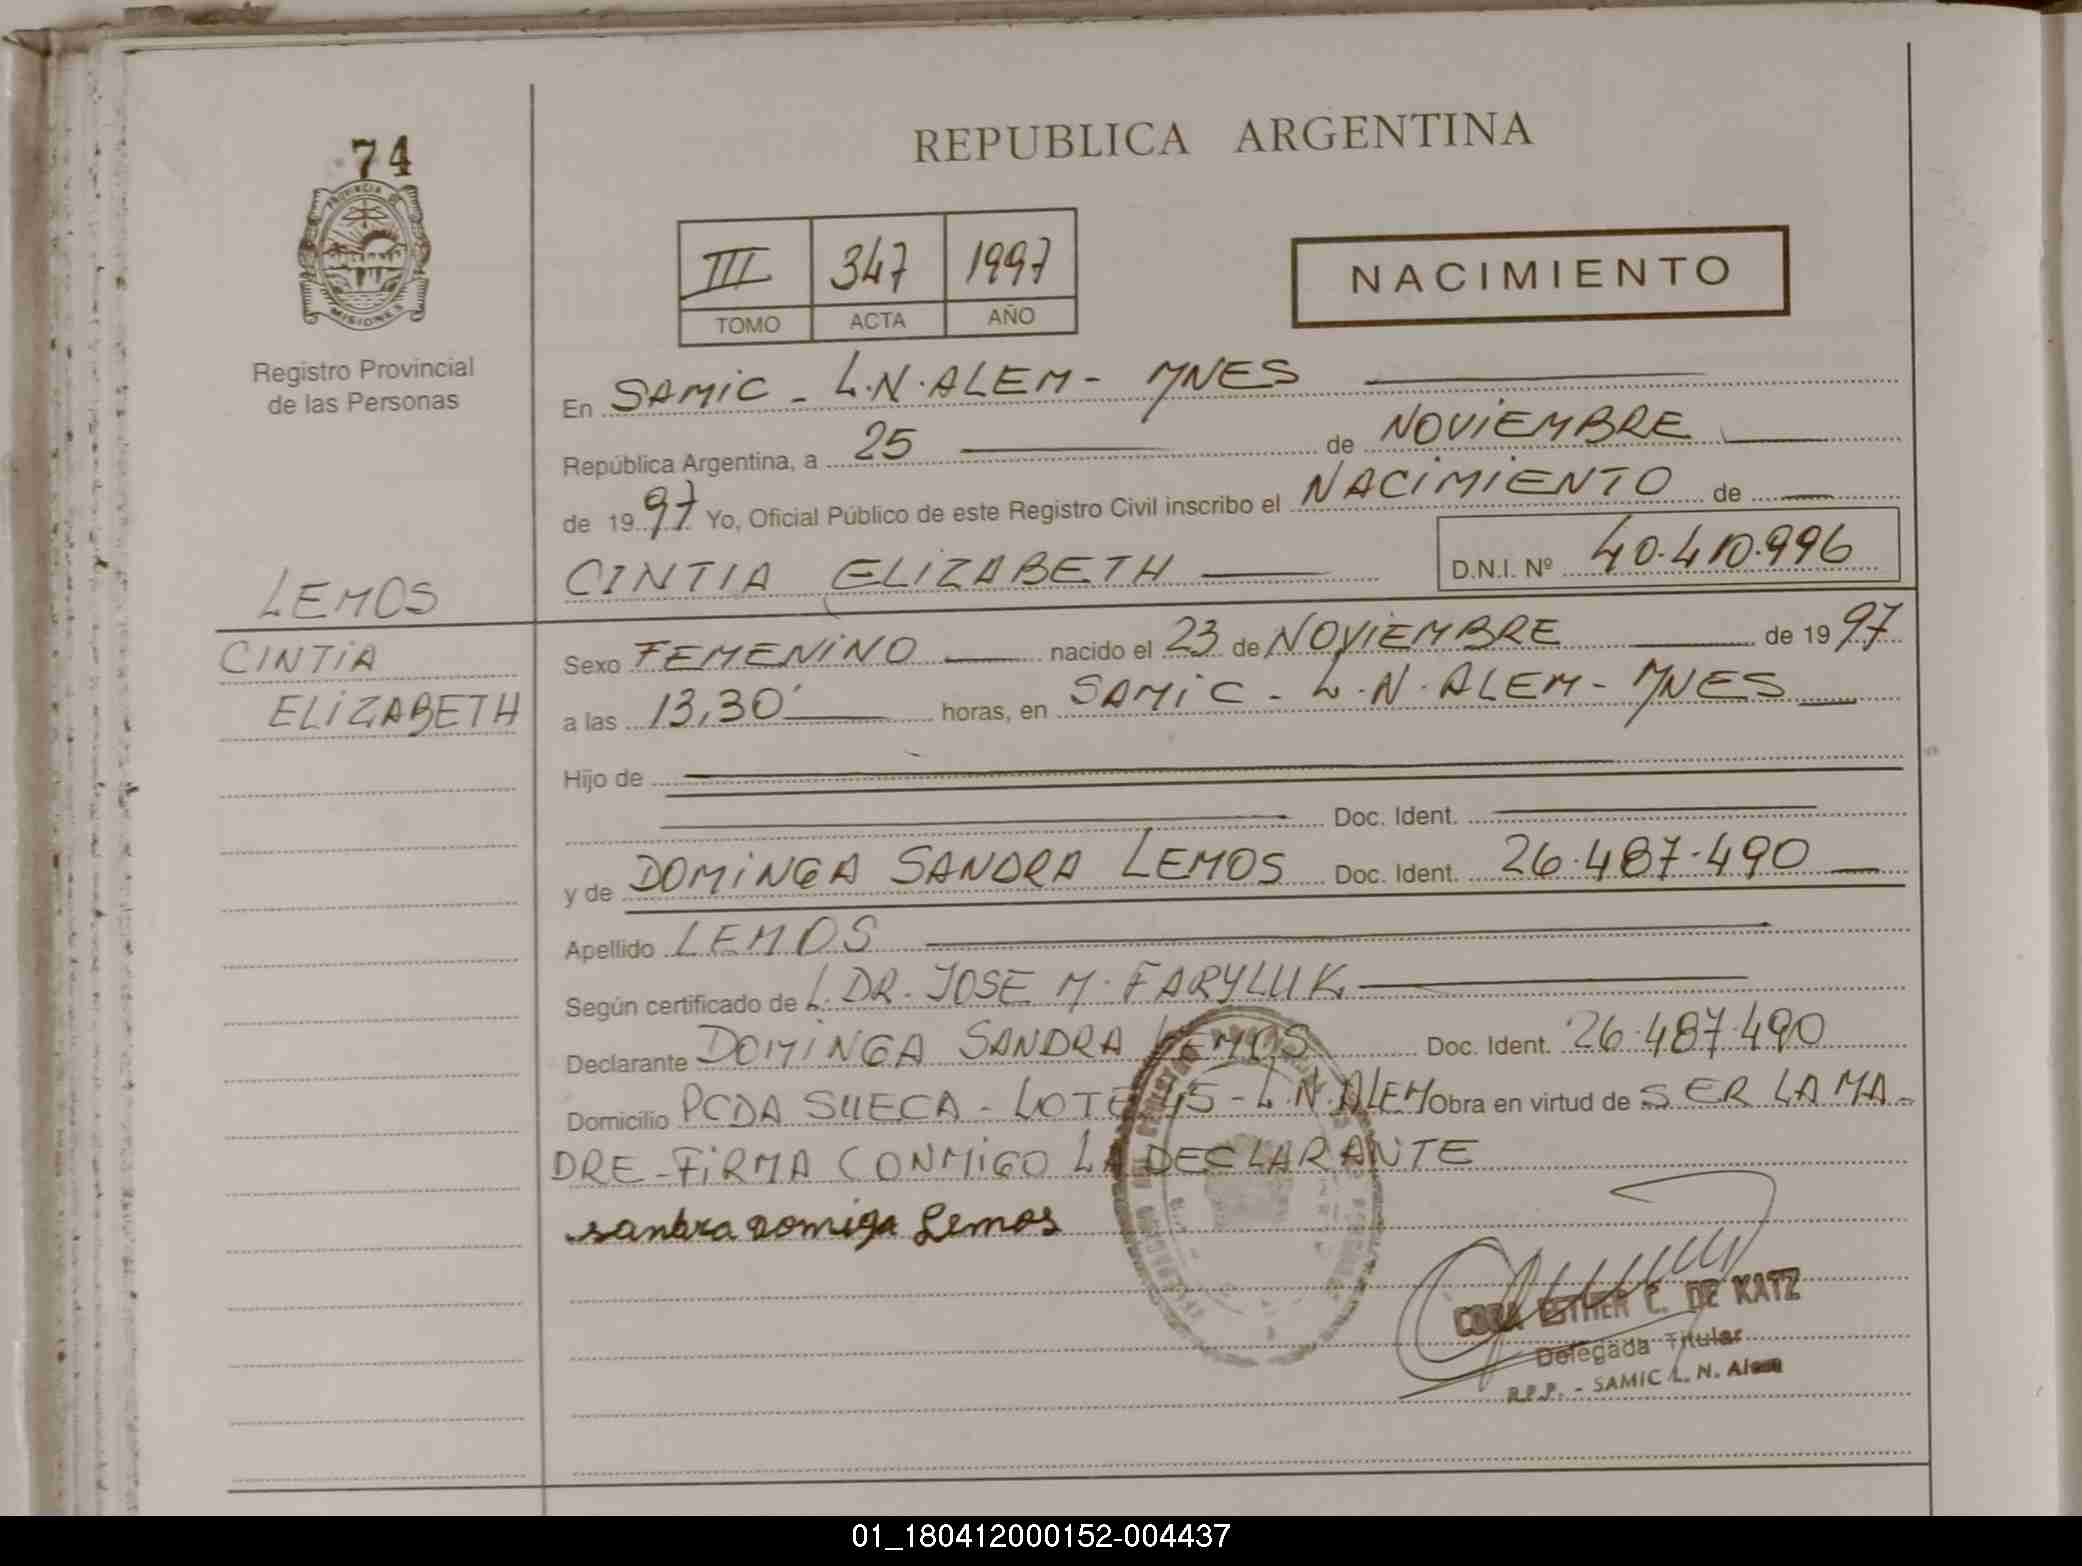 74
PROVINCIA DE
MISIONES
Registro Provincial
de las Personas
REPUBLICA ARGENTINA
III 347 1997
TOMO ACTA AÑO
NACIMIENTO
En SAMIC - L.N. ALEM - MNES
República Argentina, a 25 de NOVIEMBRE
de 1997 Yo, Oficial Público de este Registro Civil inscribo el NACIMIENTO de
CINTIA ELIZABETH D.N.I. Nº 40.410.996
LEMOS
CINTIA
ELIZABETH
Sexo FEMENINO nacido el 23 de NOVIEMBRE de 1997
a las 13,30' horas, en SAMIC - L.N. ALEM - MNES
Hijo de
Doc. Ident.
y de DOMINGA SANDRA LEMOS Doc. Ident. 26.487.490
Apellido LEMOS
Según certificado de L. DR. JOSE M. FARYLUK
Declarante DOMINGA SANDRA LEMOS Doc. Ident. 26.487.490
Domicilio PCDA SUECA - LOTE 45 - L.N. ALEM Obra en virtud de SER LA MA-
DRE - FIRMA CONMIGO LA DECLARANTE
sandra Domiga Lemos
CORA ESTHER C. DE KATZ
Delegada Titular
R.P.P. - SAMIC L. N. Alem
01_180412000152-004437